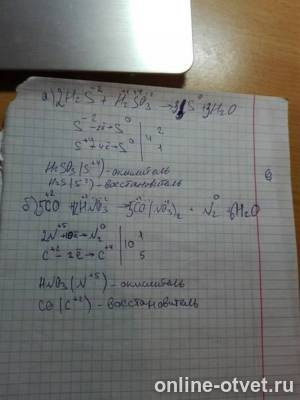 а) 2H₂S⁻² + H₂S⁺⁴O₃ → 3S⁰ + 3H₂O
S⁻² - 2ē → S⁰ | 2
S⁺⁴ + 4ē → S⁰ | 4 | 1
H₂SO₃ (S⁺⁴) - окислитель
H₂S (S⁻²) - восстановитель
б) 5C⁺²O HNO₃ → (NO₃)₂ + N₂⁰ H₂O
2N⁺⁵ + 10ē → N₂⁰ | 1
C⁺² - 2ē → C⁺⁴ | 10 | 5
HNO₃ (N⁺⁵) - окислитель
CO (C⁺²) - восстановитель
online-otvet.ru